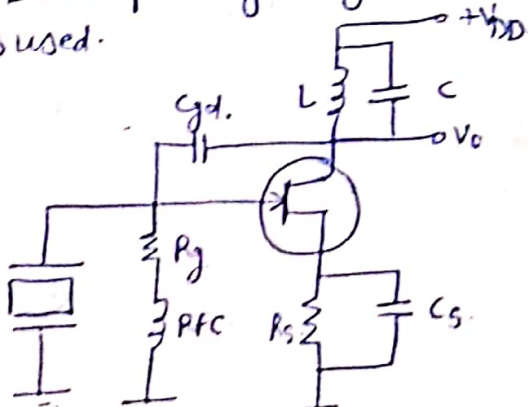 used.
+VDD
L
C
Cgd.
Vo
Rg
RFC
Rs
Cs.